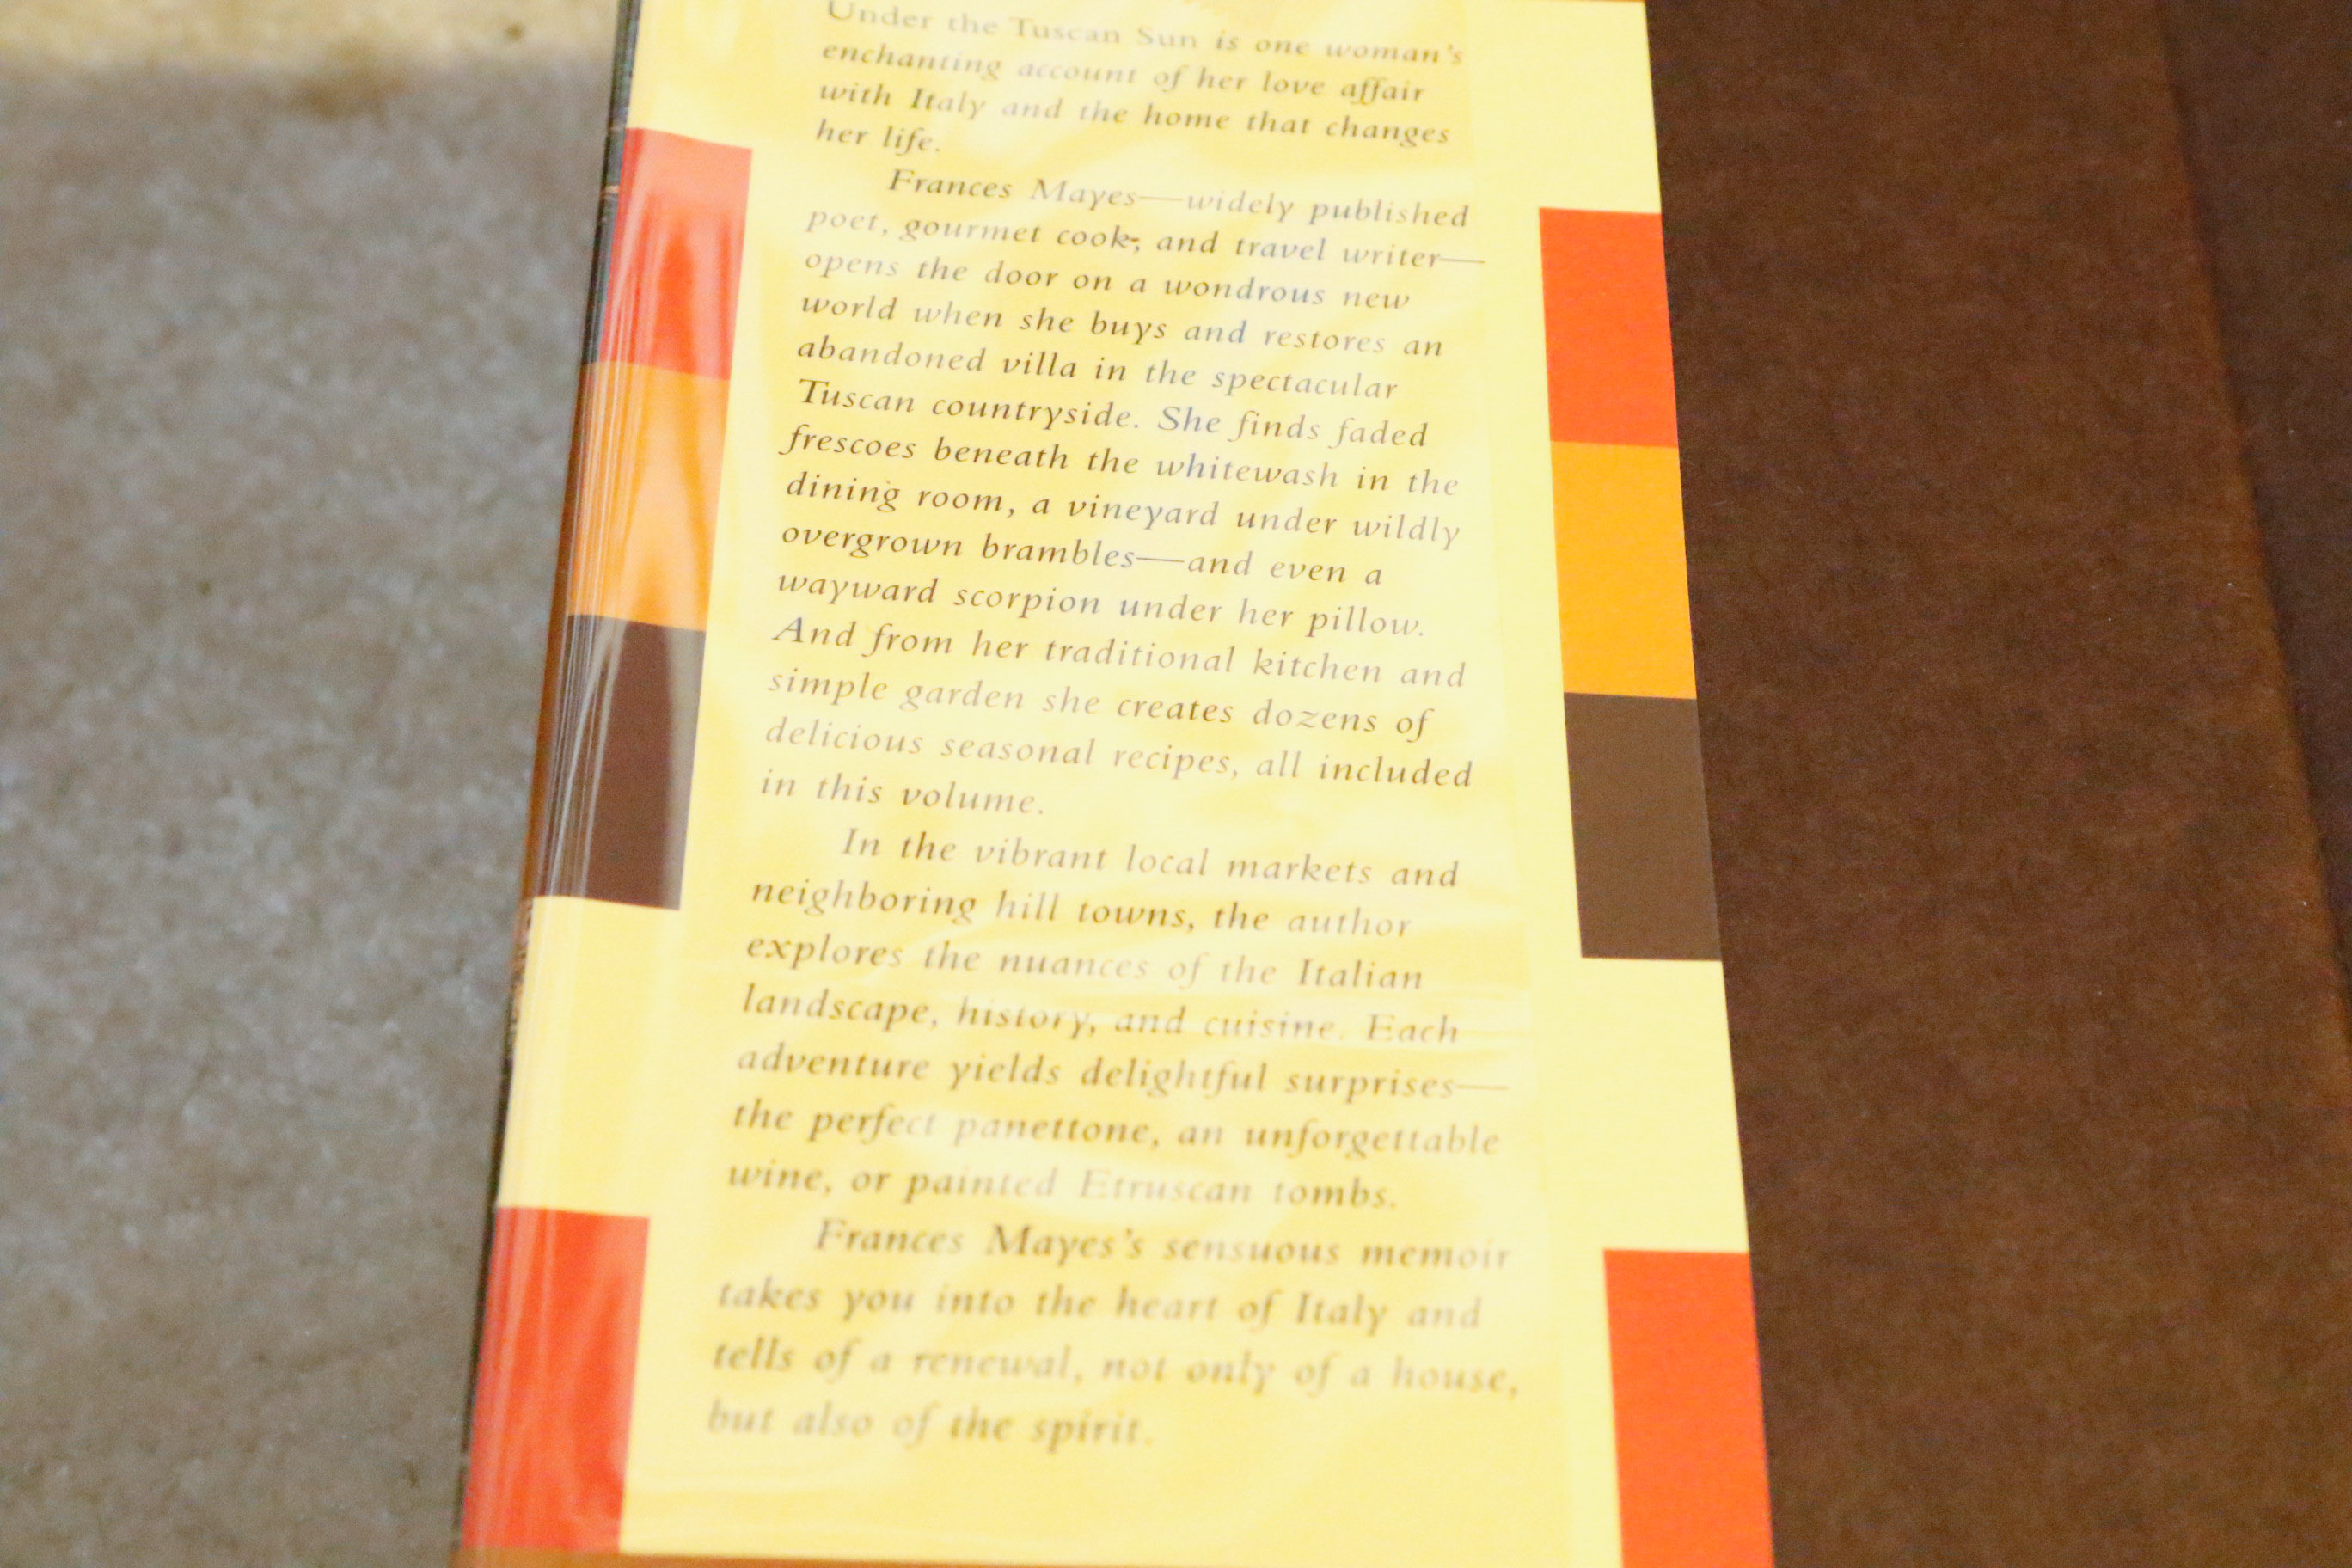 Under the Tuscan Sun is one woman's
enchanting account of her love affair
with Italy and the home that changes
her life.
Frances Mayes—widely published
poet, gourmet cook, and travel writer—
opens the door on a wondrous new
world when she buys and restores an
abandoned villa in the spectacular
Tuscan countryside. She finds faded
frescoes beneath the whitewash in the
dining room, a vineyard under wildly
overgrown brambles—and even a
wayward scorpion under her pillow.
And from her traditional kitchen and
simple garden she creates dozens of
delicious seasonal recipes, all included
in this volume.
In the vibrant local markets and
neighboring hill towns, the author
explores the nuances of the Italian
landscape, history, and cuisine. Each
adventure yields delightful surprises—
the perfect panettone, an unforgettable
wine, or painted Etruscan tombs.
Frances Mayes's sensuous memoir
takes you into the heart of Italy and
tells of a renewal, not only of a house,
but also of the spirit.